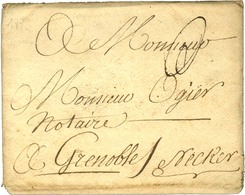 A Monsieur
Monsieur Ogier
Notaire
A Grenoble / Necker